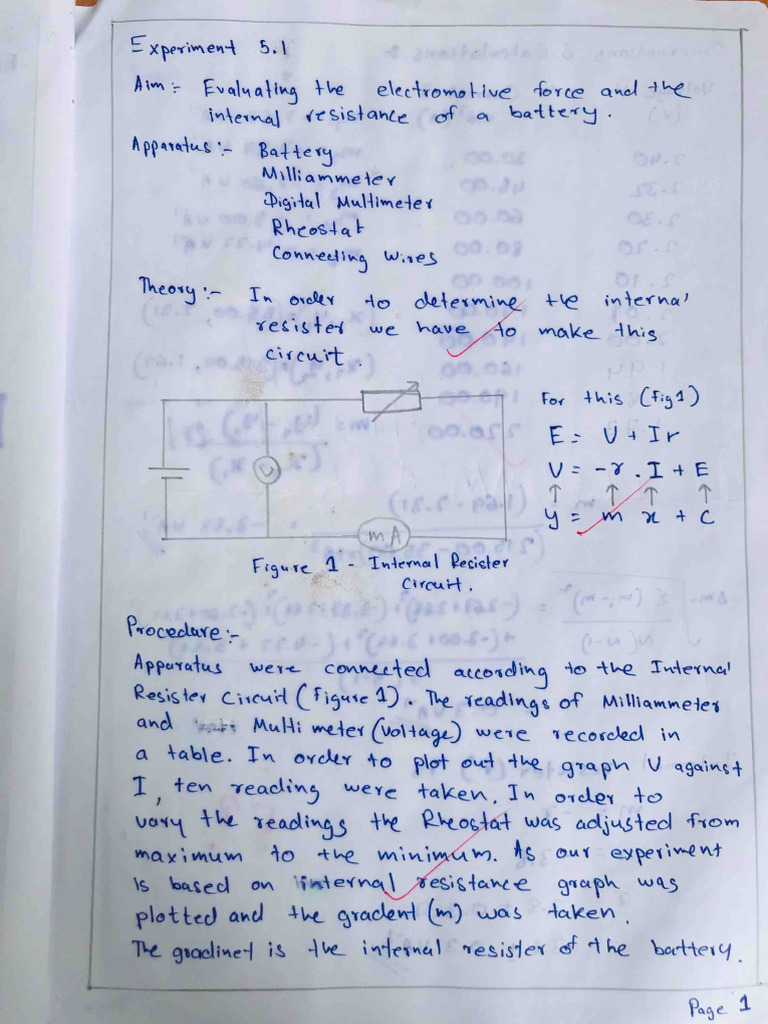 Experiment 5.1
Aim :- Evaluating the electromotive force and the
internal resistance of a battery.
Apparatus :- Battery
Milliammeter
Digital Multimeter
Rheostat
Connecting wires
Theory :- In order to determine the internal
resister we have to make this
circuit.
For this (fig 1)
E = V + Ir
V = -r . I + E
y = m x + c
V
mA
Figure 1 - Internal Resister
Circuit.
Procedure :-
Apparatus were connected according to the Internal
Resister Circuit (figure 1). The readings of Milliammeter
and Multi meter (voltage) were recorded in
a table. In order to plot out the graph V against
I, ten reading were taken. In order to
vary the readings the Rheostat was adjusted from
maximum to the minimum. As our experiment
is based on internal resistance graph was
plotted and the gradent (m) was taken.
The gradinet is the internal resister of the battery.
Page 1